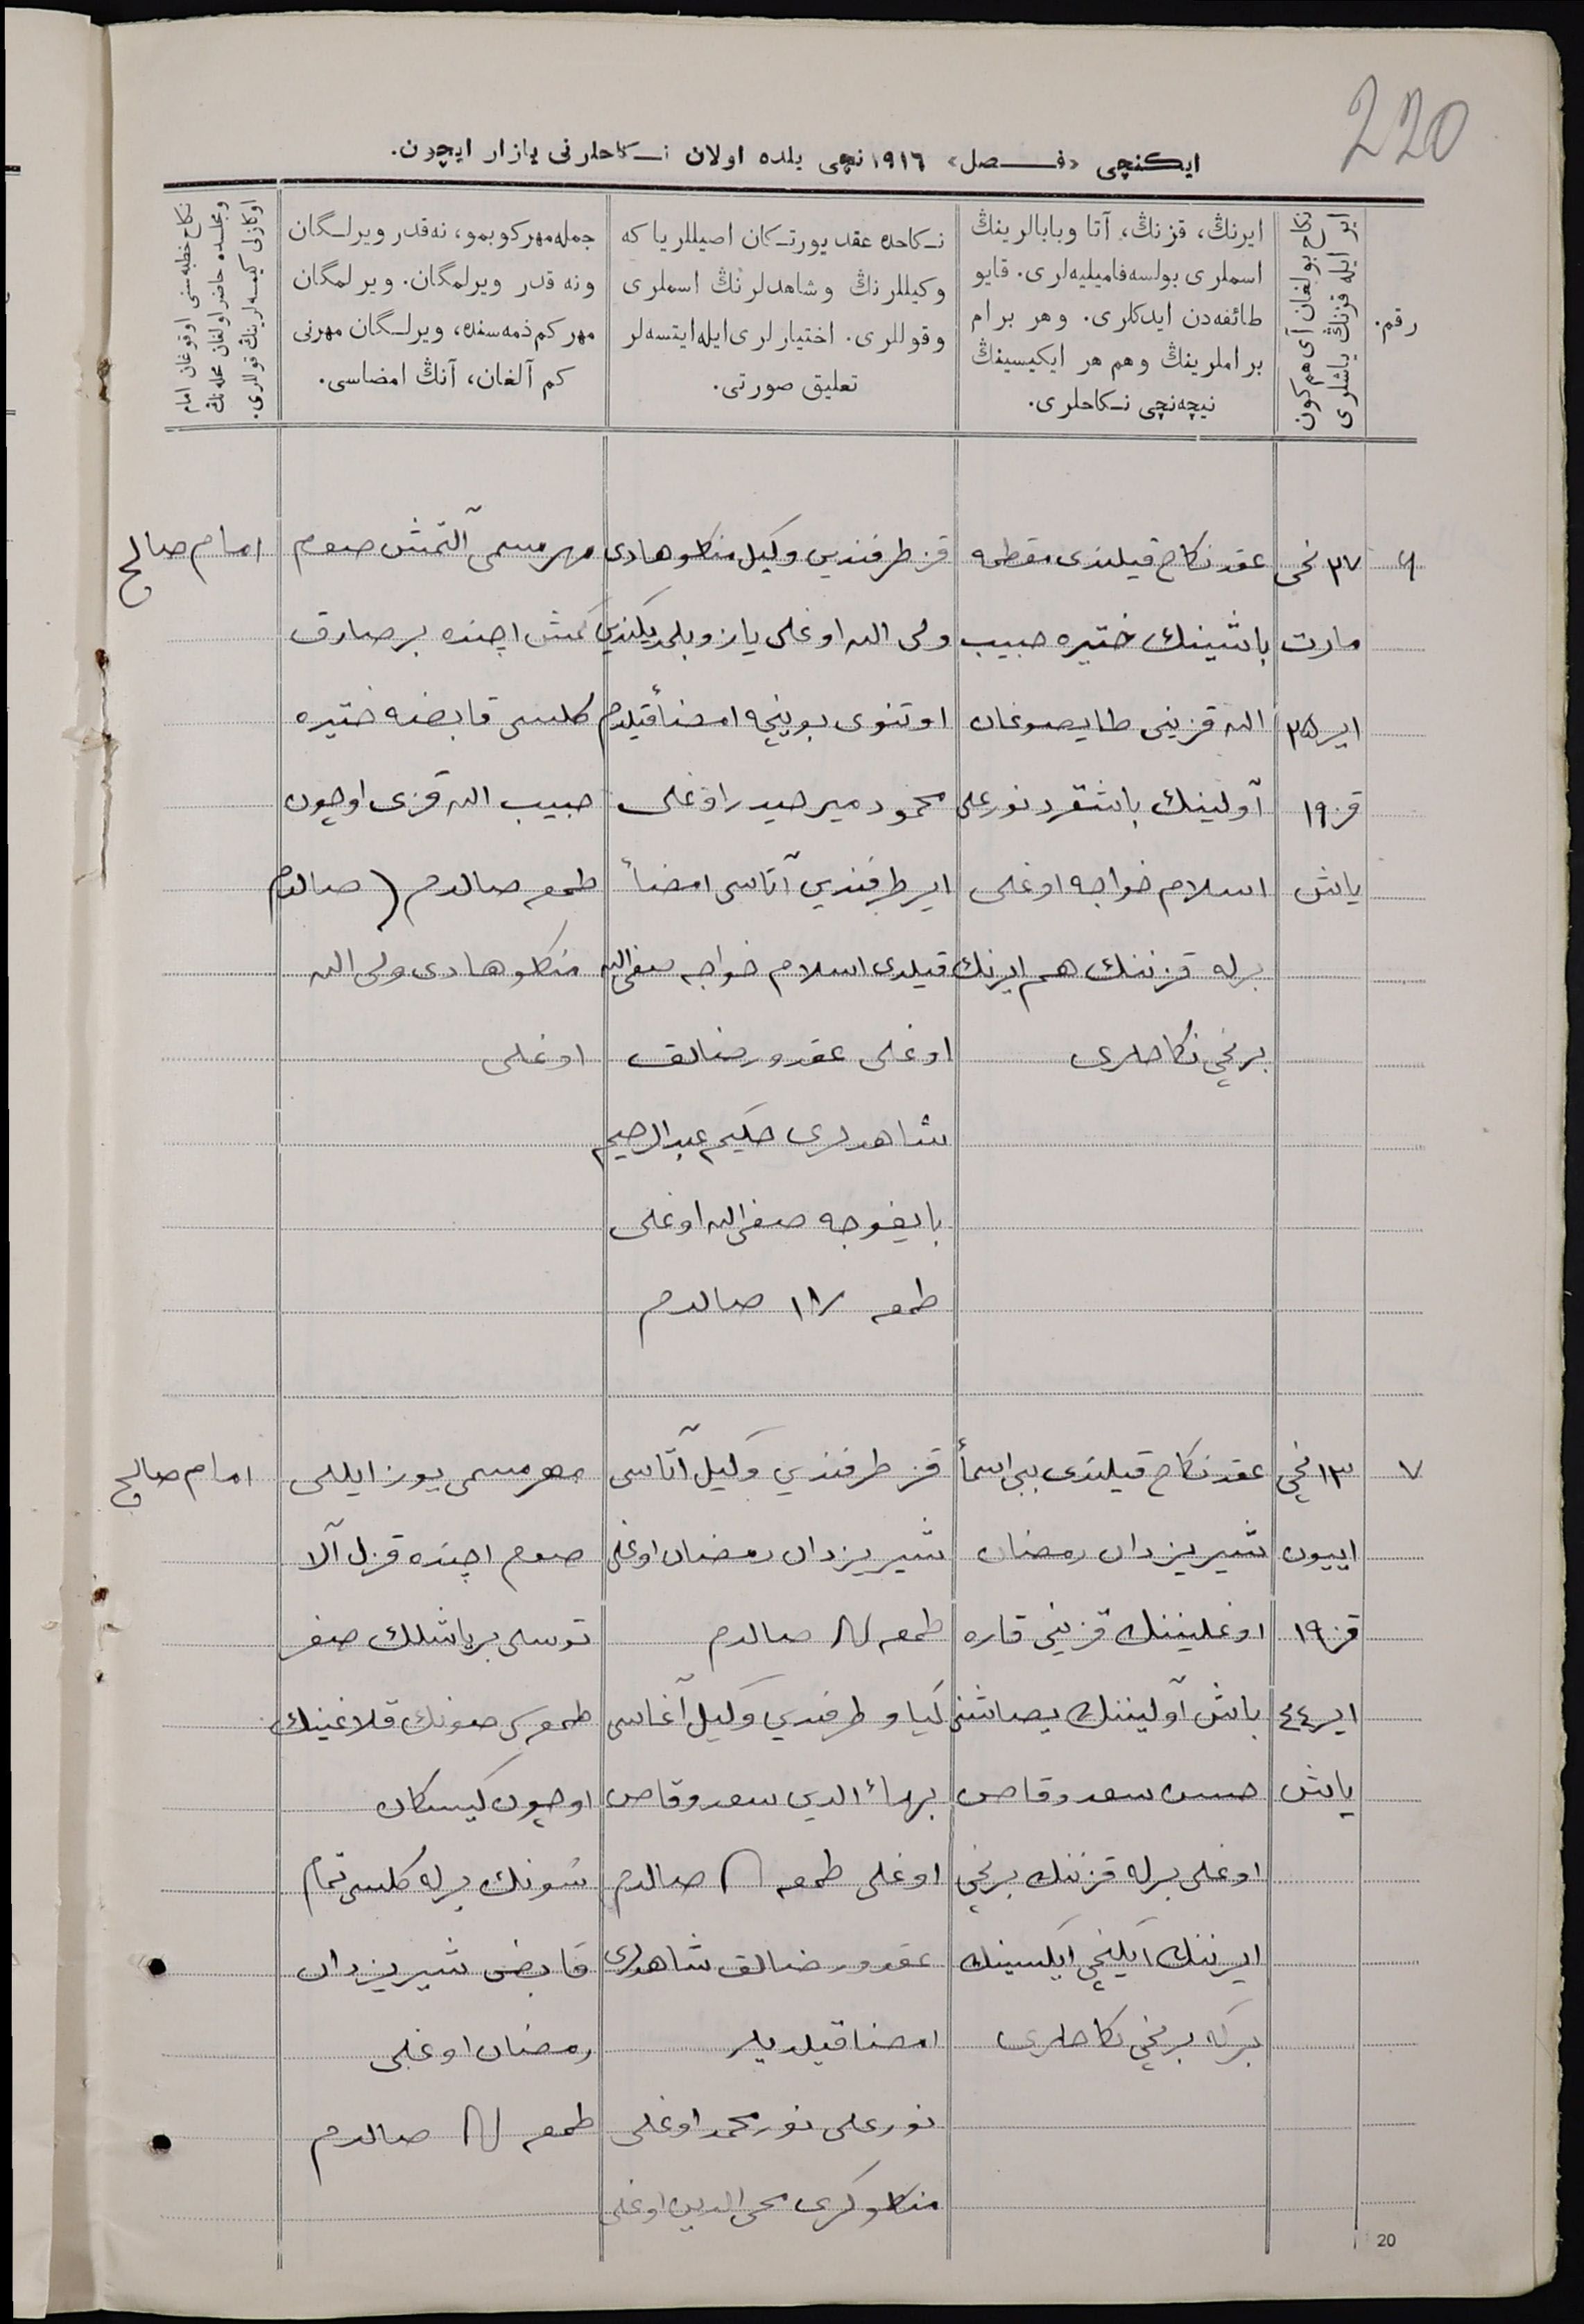 220
ایكنچی «فـصل» ١٩١٦نچی یلده اولان نـكاحلرنی یازار ایچون.
رقم.
نكاح بولغان آی هم كون
ایر ایله قزنڭ یاشلری
ایرنڭ، قزنڭ، آتا وبابالرینڭ
اسملری بولسه فامیلیه‌لری. قایو
طائفه‌دن ایدكلری. وهر برام
براملرینڭ وهم هر ایكیسینڭ
نیچه‌نچی نـكاحلری.
نـكاحده عقد یورتـكان اصیللریا كه
وكیللرنڭ وشاهدلرنڭ اسملری
وقوللری. اختیارلری ایله ایتسه‌لر
تعلیق صورتی.
جمله‌مهر كوبمو، نه‌قدر ویرلـگان
ونه قدر ویرلمگان. ویرلمگان
مهر كم ذمه‌سنده، ویرلـگان مهرنی
كم آلغان، آنڭ امضاسی.
نكاح خطبه‌سنی اوقوغان امام
ومجلسده حاضر اولغان محله‌نڭ
اوكازلی كیمسه‌لرینڭ قوللری.
٦
٢٧ نچی
مارت
ایر ٢٥
قز ١٩
یاش
عقد نكاح قیلندی
باشینك ختیره حبیب
الله قزینی طایصوغان
آولینك باشقرد نورعلی
اسلام خواجه اوغلی
برله قزننك هم ایرنك
برنچی نكاحلری
قز طرفندین وكیل منكلوهادی
ولی الله اوغلی یازو بلمدیكندین
اوتنوی بوینچه امضأ قیلدم
محمود میرحیدر اوغلی
ایر طرفندین آتاسی امضأ
قیلدی اسلام خواجه صفی الله
اوغلی عقد و رضالق
شاهدلری حكیم عبدالرحیم
بایغوجه صفی الله اوغلی
طمعه صالدم
مهر مسمی آلتمش صوم
كمش اچنده بر صارق
كلسی قابضه ختیره
حبیب الله قزی اوچون
طمعه صالدم ( صالدم
منكلوهادی ولی الله
اوغلی
امام صالح
٧
١٣ نچی
اییون
قز ١٩
ایر ٤٤
یاش
عقد نكاح قیلندی بی بی اسمأ
شیریزدان رمضان
اوغلیننك قزینی قاره
باش آولیننك
حسن سعد وقاص
اوغلی برله قزننك برنچی
ایرننك ایكنچی ایكسینك
برگه برنچی نكاحلری
قز طرفندین وكیل آتاسی
شیریزدان رمضان اوغلی
طمعه صالدم
كیاو طرفندین وكیل آغاسی
بهاءالدین سعد وقاص
اوغلی طمعه صالدم
عقد و رضالق شاهدلری
امضا قیلدیلر
نورعلی نورمحمد اوغلی
منكلوكری محی الدین اوغلی
مهر مسمی یوز ایللی
صوم اچنده قزل آلا
توسلی بر یاشلك صغر
طمعه‌سی صونك قلاغینك
اوچون كیسكان
شونك برله كلسی تمام
قابض شیریزدان
رمضان اوغلی
طمعه صالدم
امام صالح
20